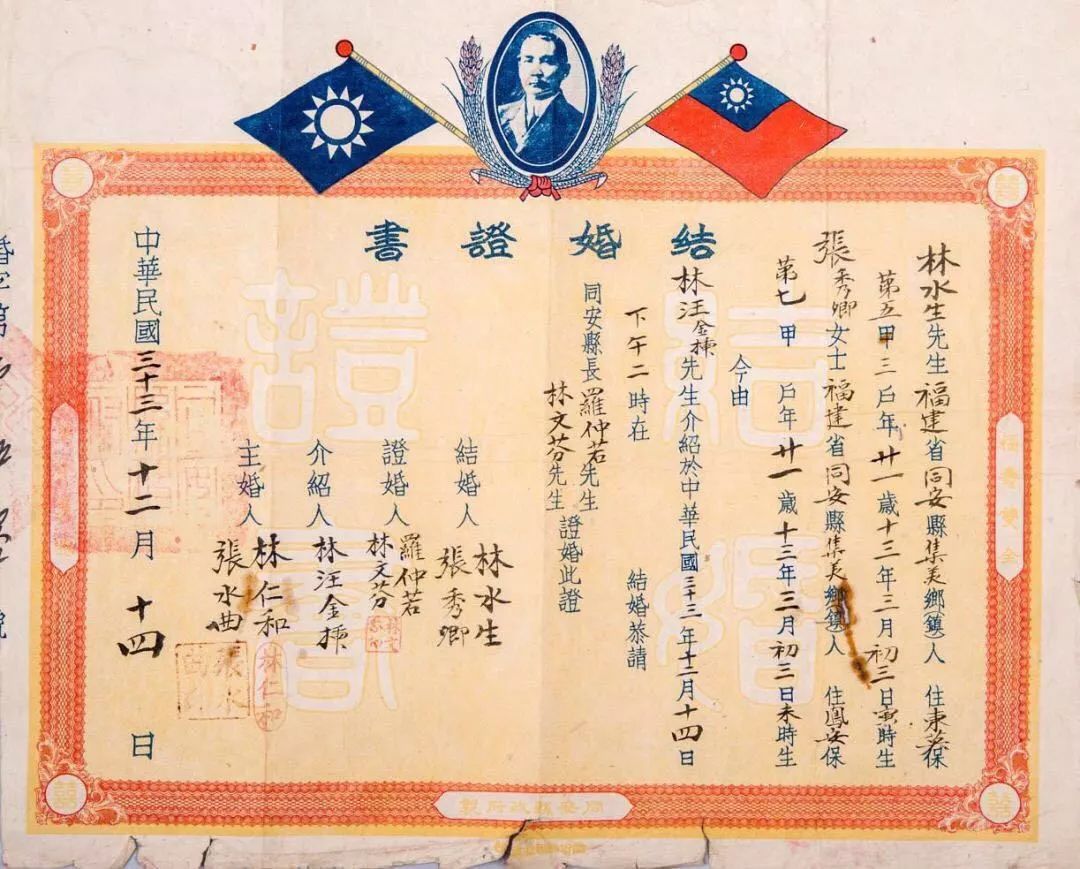 結婚證書
林水生先生福建省同安縣集美鄉(鎮)人 住東安保
第五甲三戶年廿一歲十三年三月初三日寅時生
張秀卿女士福建省同安縣集美鄉(鎮)人 住鳳安保
第七甲 戶年廿一歲十三年三月初三日未時生
今由
林汪金揀先生介紹於中華民國三十三年十二月十四日
下午二時在 結婚恭請
同安縣長羅仲若先生
林文芬先生 證婚此證
結婚人 林水生
張秀卿
證婚人 羅仲若
林文芬
介紹人 林汪金揀
主婚人 林仁和
張水曲
中華民國三十三年十二月十四日
林仁和
福壽雙全
同安縣政府製